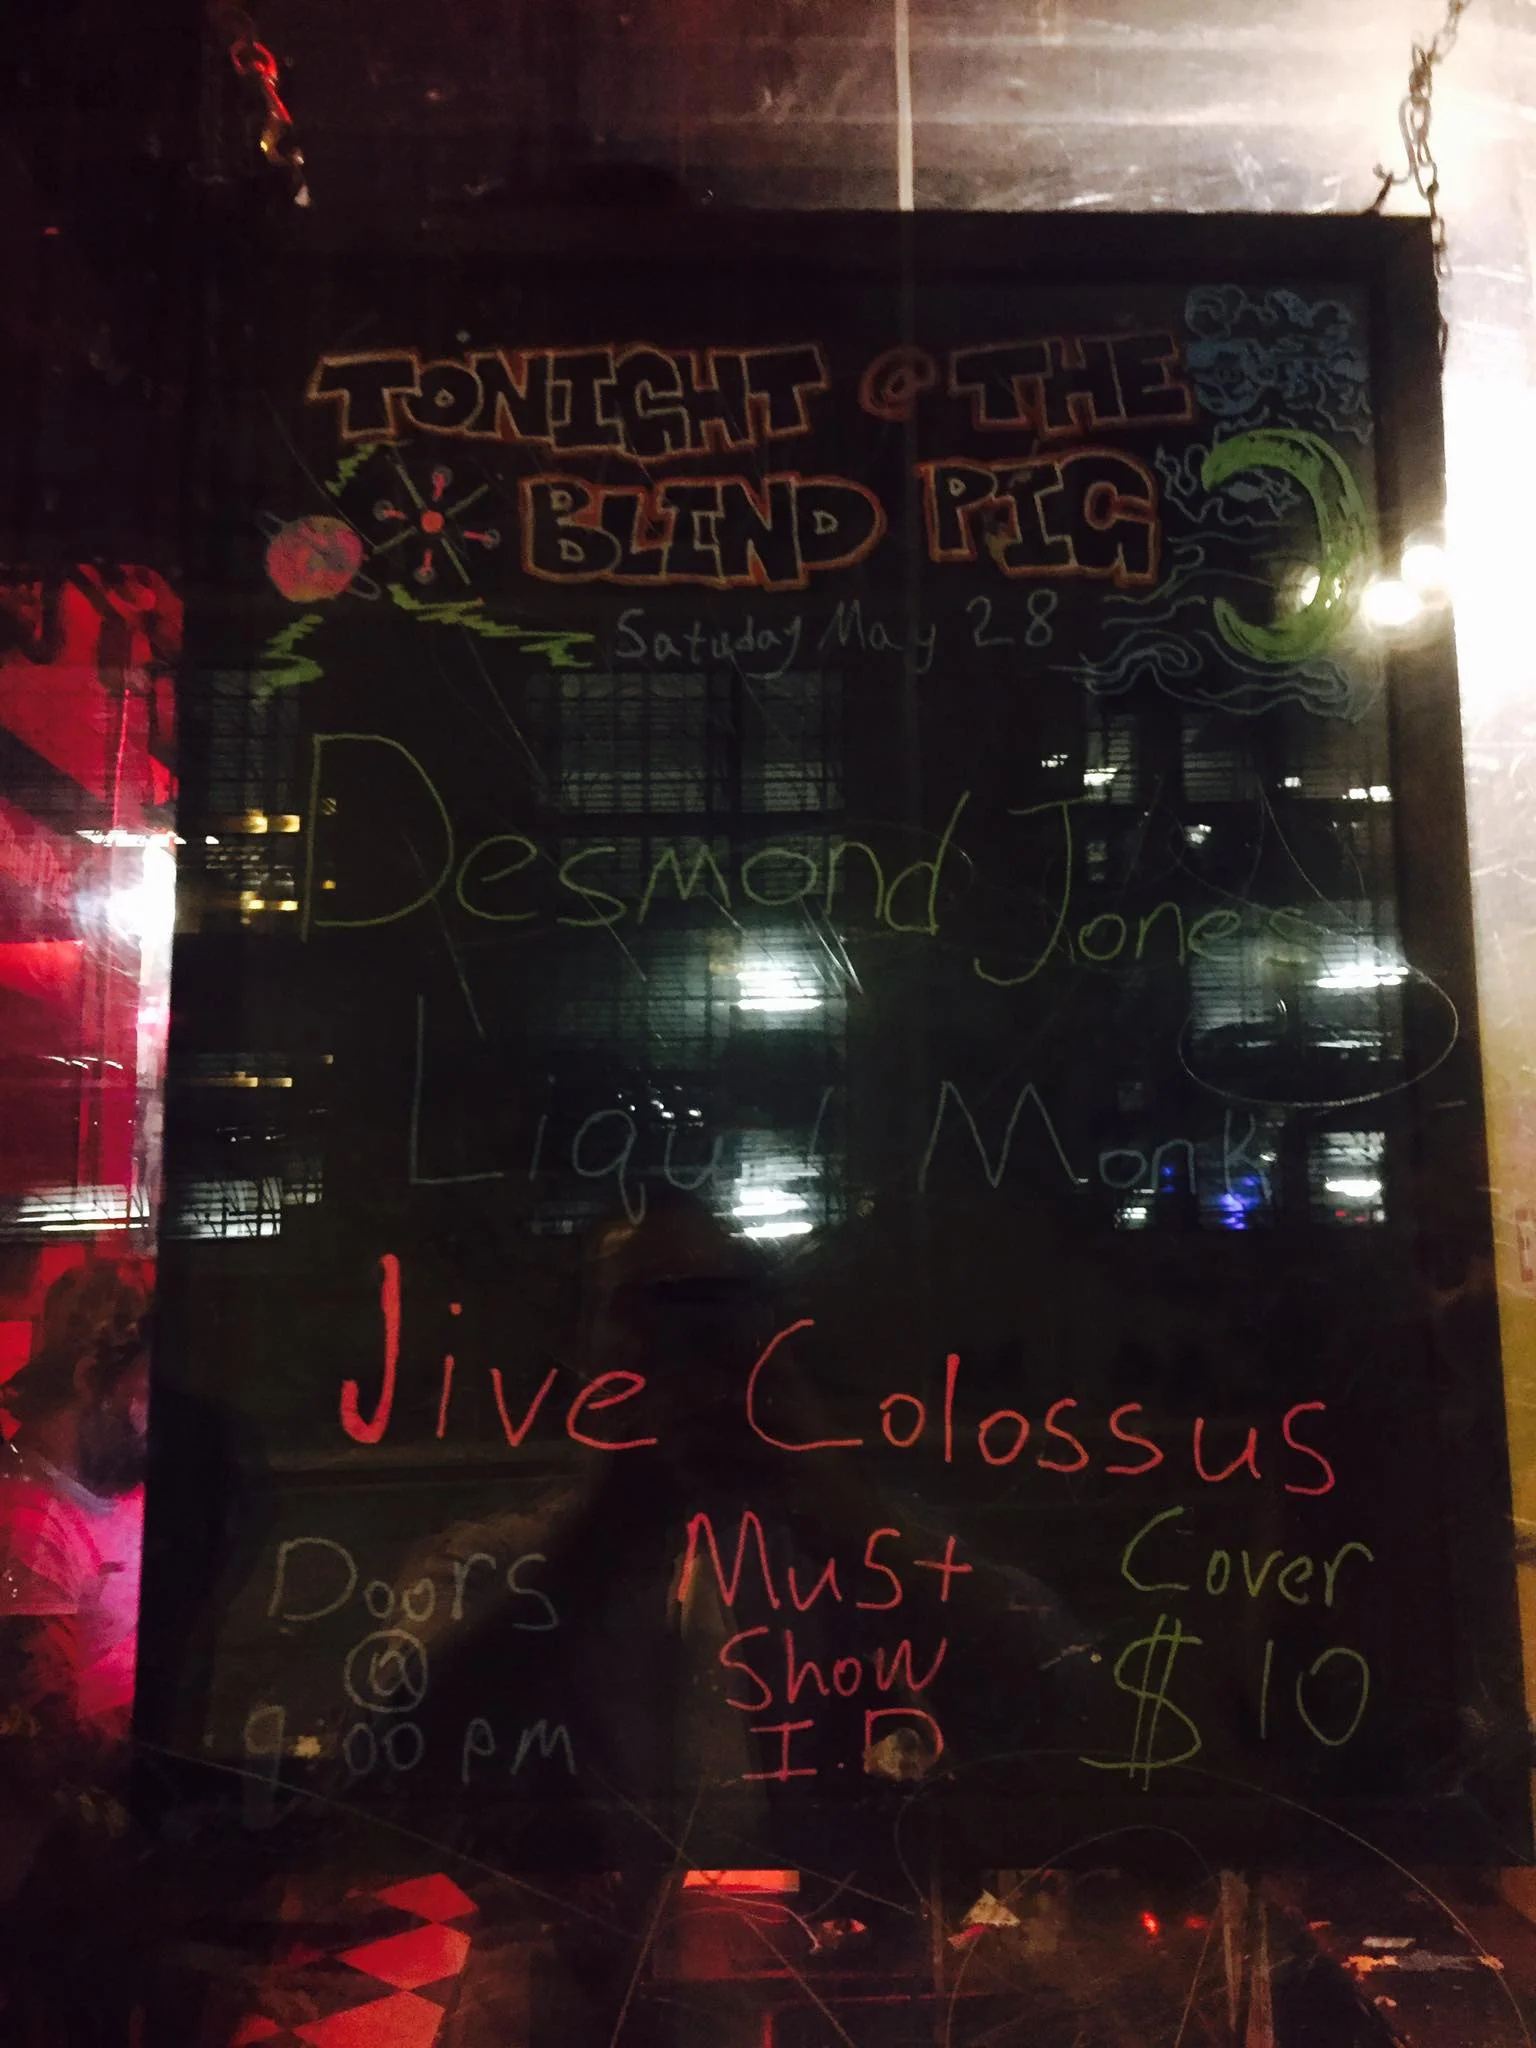 TONIGHT @ THE
BLIND PIG
Satuday May 28
Desmond Jones
Liquid Monk
Jive Colossus
Doors
@
9:00 PM
Must
Show
I.D
Cover
$10